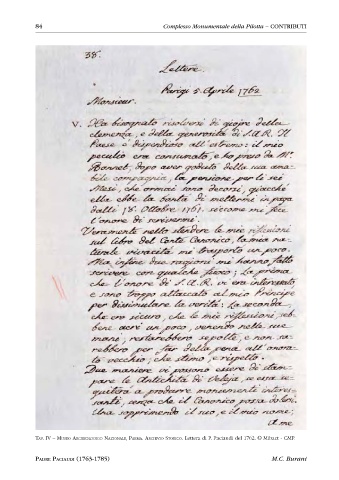 84
Complesso Monumentale della Pilotta – CONTRIBUTI
38.
Lettere.
Parigi 5. Aprile 1762
Monsieur.
V. Ha bisognato risolversi di gioire della
clemenza, e della generosità di S.A.R. Il
Paese è dispendioso all'estremo: il mio
peculio era consumato, e ho preso da Mr.
Bonnet, dopo aver goduto della sua
compagnia, la pensione, per le sei
Mesi, che ormai sono decorsi, giacché
ella ebbe la bontà di mettermi in paga
dalli 18. Ottobre 1761. siccome mi fece
l'onore di scrivermi.
Veramente nello stendere le mie riflessioni
sul libro del Conte Canonico, la mia na-
turale vivacità mi trasportò un poco.
Ma infine due ragioni mi hanno fatto
scrivere con qualche fuoco; La prima
che l'onore di S.A.R. vi era interessato
e sono troppo attaccato al mio Principe
per dissimulare la verità: La seconda,
che ero sicuro, che le mie riflessioni, seb-
bene acri un poco, venendo nelle sue
mani, resterebbero sepolte, e non sa-
rebbero per far della pena all'onora-
to vecchio, che stimo, e rispetto.
Due maniere vi possono essere di stam-
pare le Antichità di Veleja, se essa se-
guiterà a produrre monumenti interes-
santi, senza che il Canonico possa
Una sopprimendo il suo, e il mio nome;
A me
TAV. IV – MUSEO ARCHEOLOGICO NAZIONALE, PARMA, ARCHIVIO STORICO. Lettera di P. Paciaudi del 1762. © MiBACT - CMP.
PADRE PACIAUDI (1763-1785)
M.C. Burani